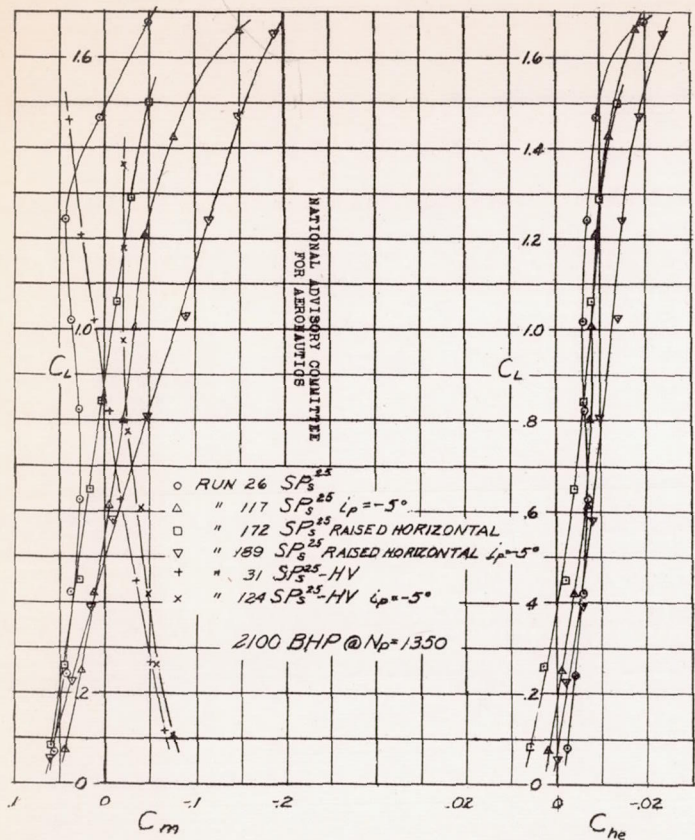 1.6
1.0
C_L
0
.1
0
-.1
-.2
C_m
NATIONAL ADVISORY COMMITTEE
FOR AERONAUTICS
○ RUN 26 SP_s^25
△ " 117 SP_s^25 i_p=-5°
□ " 172 SP_s^25 RAISED HORIZONTAL
▽ " 189 SP_s^25 RAISED HORIZONTAL i_p=-5°
+ " 31 SP_s^25-HV
× " 124 SP_s^25-HV i_p=-5°
2100 BHP @ N_P=1350
1.6
1.4
1.2
1.0
C_L
.8
.6
.4
.2
0
.02
0
-.02
C_he